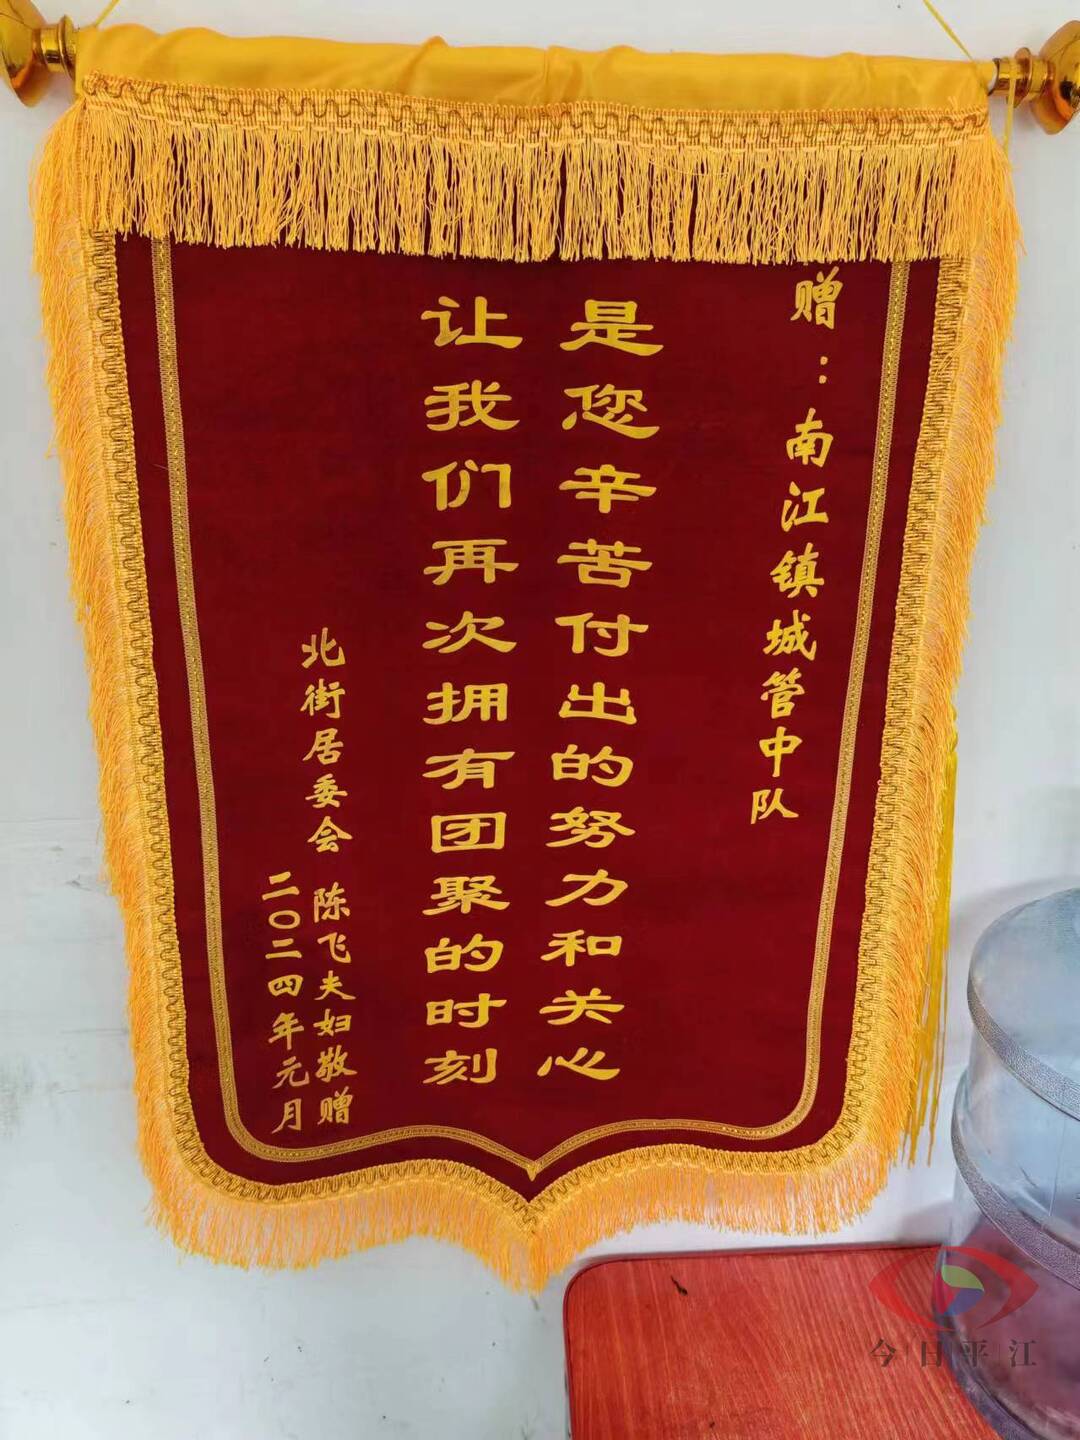 赠：南江镇城管中队
是您辛苦付出的努力和关心
让我们再次拥有团聚的时刻
北街居委会 陈飞夫妇敬赠
二〇二四年元月
今日平江